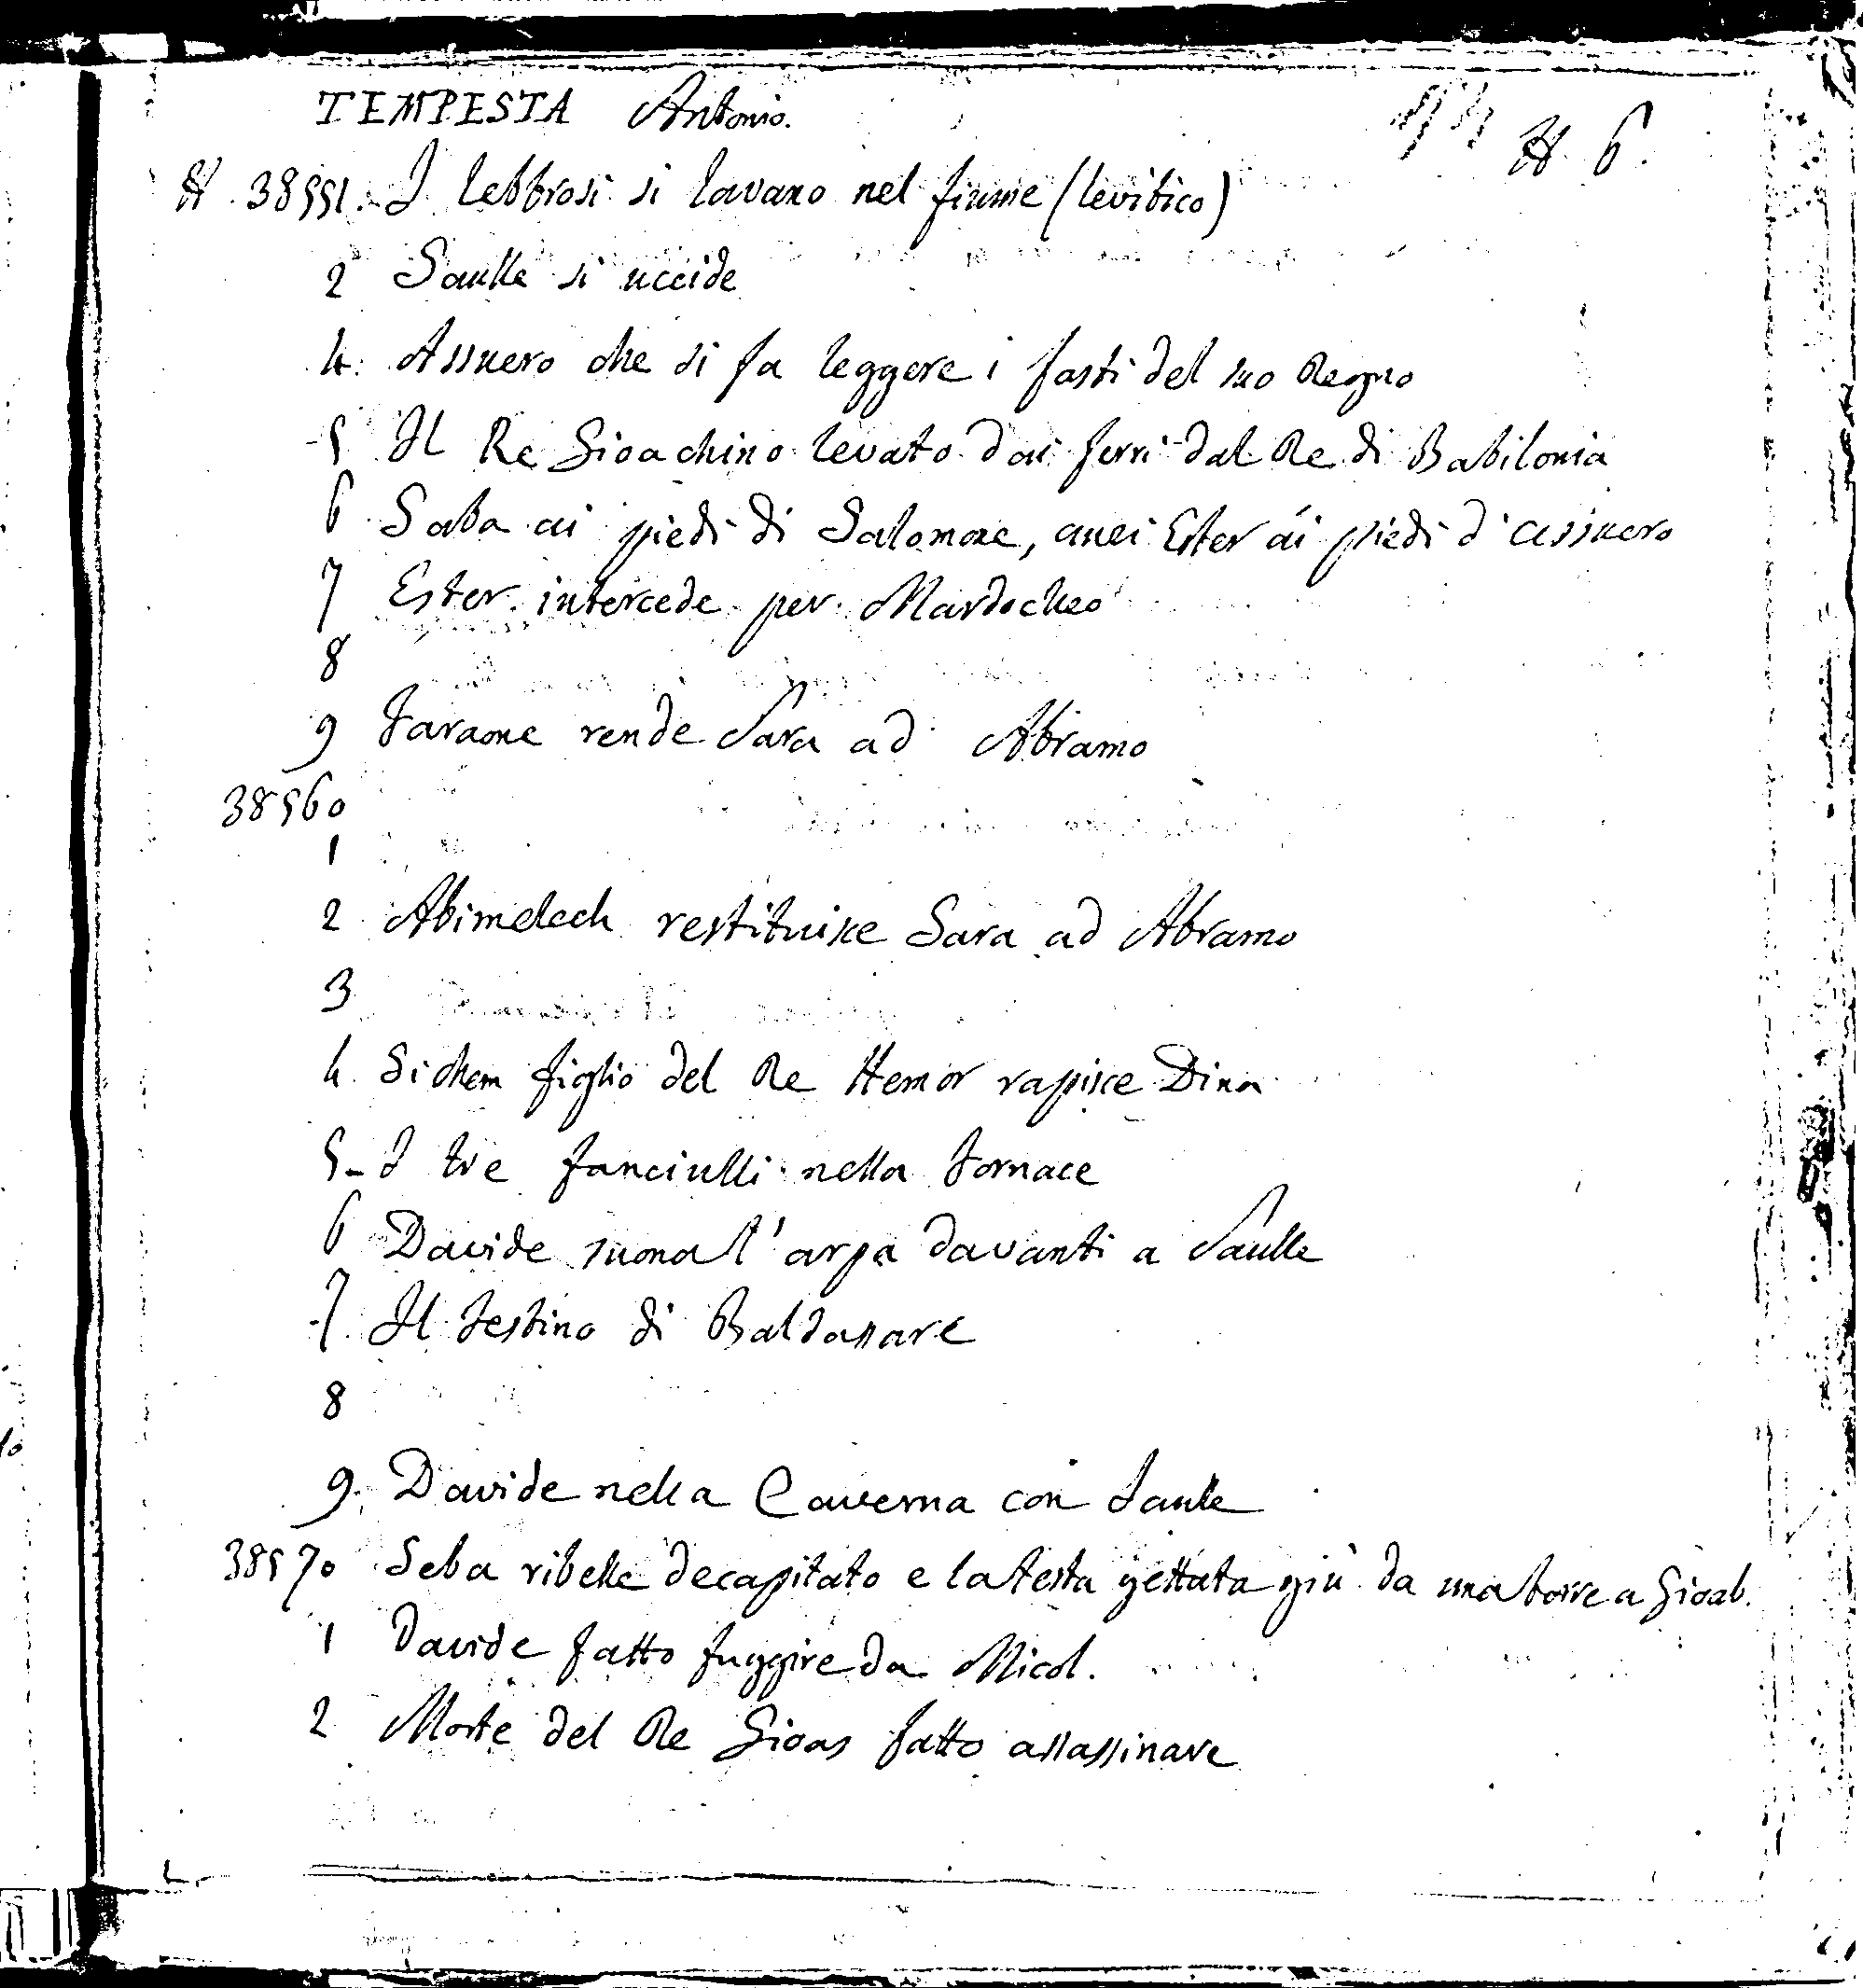 TEMPESTA Antonio.
H 6.
H. 38551. I lebbrosi si lavano nel fiume (levitico)
2 Saulle si uccide
4. Assuero che si fa leggere i fasti del suo Regno
5 Il Re Gioachino levato dai ferri dal Re di Babilonia
6 Saba ai piedi di Salomone, anzi Ester ai piedi d'assuero
7 Ester intercede per Mardocheo
8
9 Faraone rende Sara ad Abramo
38560
1
2 Abimelech restituisce Sara ad Abramo
3
4. Sichem figlio del Re Hemor rapisce Dina
5 - I tre fanciulli nella fornace
6 Davide suona l'arpa davanti a Saulle
7. Il festino di Baldassare
8
9. Davide nella Caverna con Saulle
38570 Seba ribelle decapitato e la testa gettata giù da una torre a Gioab.
1 Davide fatto fuggire da Micol.
2 Morte del Re Gioas fatto assassinare